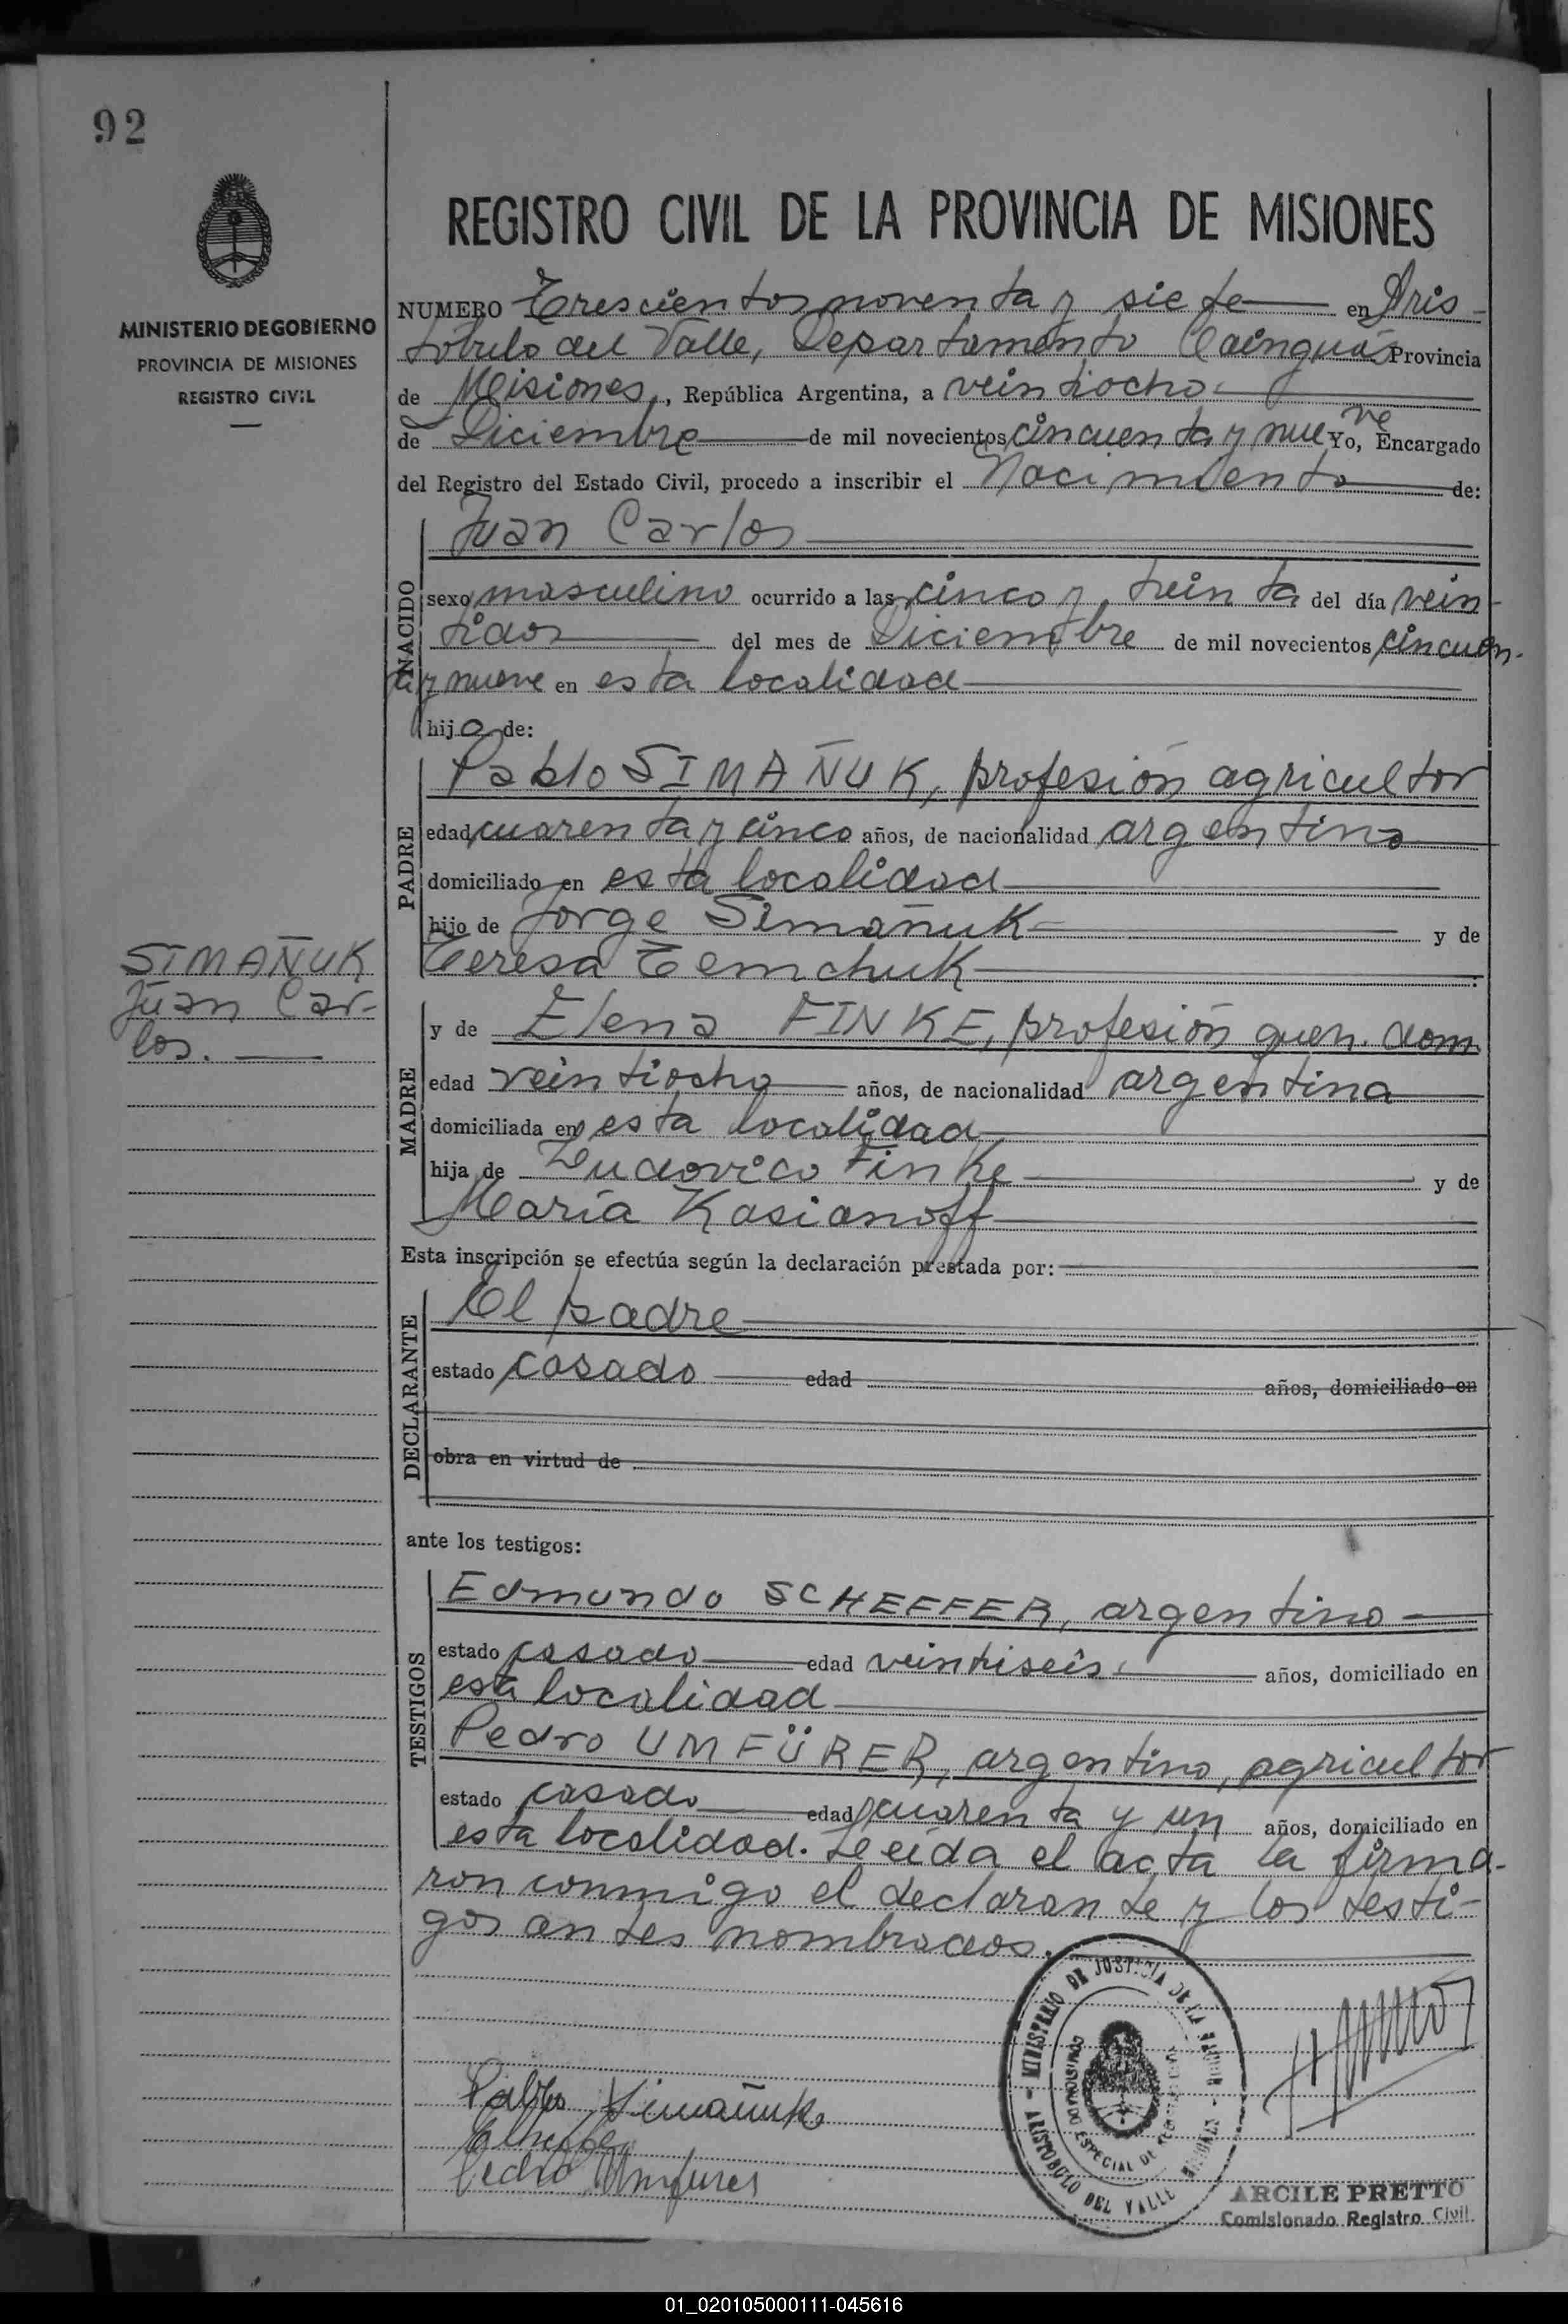 92
MINISTERIO DE GOBIERNO
PROVINCIA DE MISIONES
REGISTRO CIVIL
REGISTRO CIVIL DE LA PROVINCIA DE MISIONES
NUMERO Trescientos noventa y siete en Aris-
tóbulo del Valle, Departamento Cainguás Provincia
de Misiones, República Argentina, a veintiocho
de Diciembre de mil novecientos cincuenta y nueve Yo, Encargado
del Registro del Estado Civil, procedo a inscribir el Nacimiento de:
NACIDO
Juan Carlos
sexo masculino ocurrido a las cinco y treinta del día vein-
tidos del mes de Diciembre de mil novecientos cincuen-
ta y nueve en esta localidad
hijo de:
PADRE
Pablo SIMAÑUK, profesión agricultor
edad cuarenta y cinco años, de nacionalidad argentino
domiciliado en esta localidad
hijo de Jorge Simañuk y de
Teresa Temchuk
SIMAÑUK
Juan Car-
los.
MADRE
y de Elena FINKE, profesión queh. dom
edad veintiocho años, de nacionalidad argentina
domiciliada en esta localidad
hija de Ludovico Finke y de
María Kasianoff
Esta inscripción se efectúa según la declaración prestada por:
DECLARANTE
El padre
estado casado edad años, domiciliado en
obra en virtud de
ante los testigos:
TESTIGOS
Edmundo SCHEFFER, argentino
estado casado edad veintiseis años, domiciliado en
esta localidad
Pedro UMFÜRER, argentino, agricultor
estado casado edad cuarenta y un años, domiciliado en
esta localidad. Leeída el acta la firma-
ron conmigo el declarante y los testi-
gos antes nombrados.
MINISTERIO DE JUSTICIA DE LA NACION
COMISIONADO ESPECIAL DE
ARISTOBULO DEL VALLE - MISIONES
Pablo Simañuk
Pedro Umfurer
ARCILE PRETTO
Comisionado Registro Civil
01_020105000111-045616